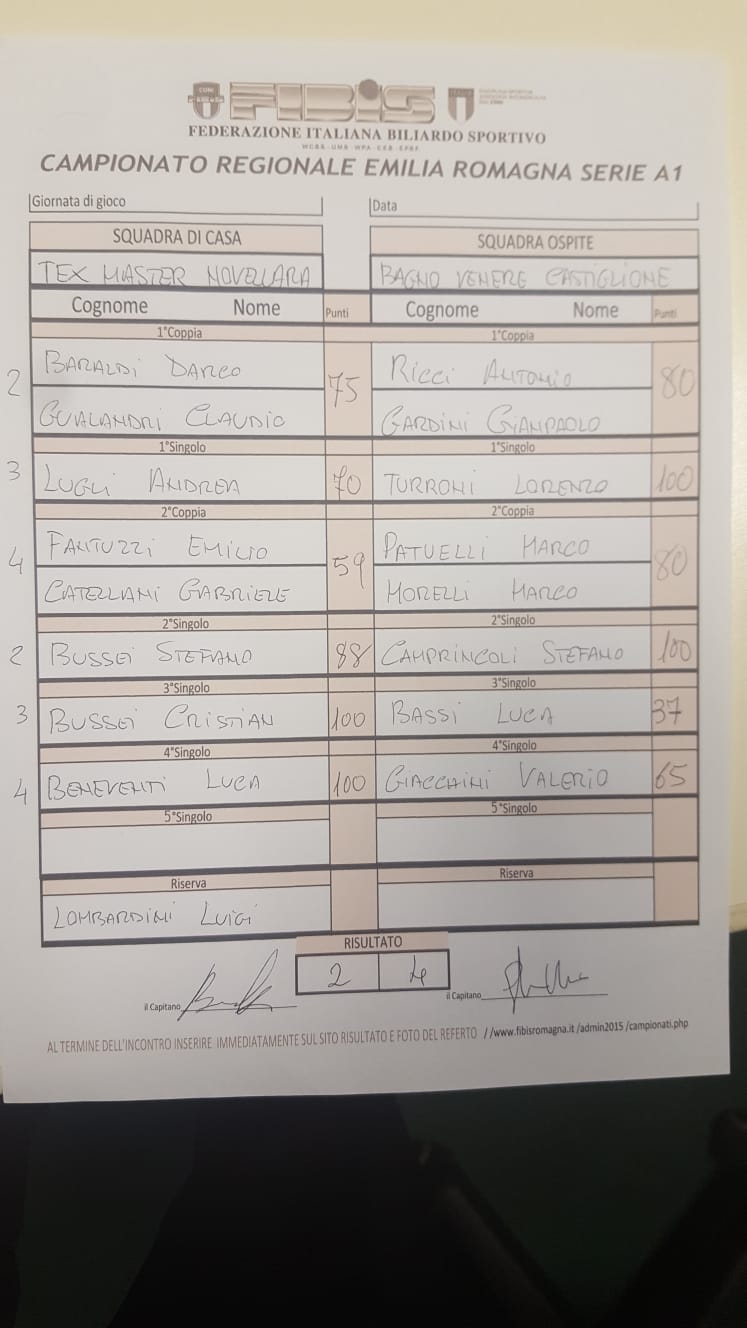 FIBIS
FEDERAZIONE ITALIANA BILIARDO SPORTIVO
CAMPIONATO REGIONALE EMILIA ROMAGNA SERIE A1
Giornata di gioco Data
SQUADRA DI CASA SQUADRA OSPITE
TEX MASTER NOVELLARA BAGNO VENERE CASTIGLIONE
Cognome Nome Punti Cognome Nome Punti
1°Coppia 1°Coppia
2 BARALDI DARCO 75 RICCI ANTONIO 80
GUALANDRI CLAUDIO GARDINI GIANPAOLO
1°Singolo 1°Singolo
3 LUGLI ANDREA 70 TURRONI LORENZO 100
2°Coppia 2°Coppia
4 FANTUZZI EMILIO 59 PATUELLI MARCO 80
CATELLANI GABRIELE MORELLI MARCO
2°Singolo 2°Singolo
2 BUSSEI STEFANO 88 CAMPRINCOLI STEFANO 100
3°Singolo 3°Singolo
3 BUSSEI CRISTIAN 100 BASSI LUCA 37
4°Singolo 4°Singolo
4 BENEVENTI LUCA 100 GIACCHINI VALERIO 65
5°Singolo 5°Singolo
Riserva Riserva
LOMBARDINI LUIGI
RISULTATO
2 4
il Capitano il Capitano
AL TERMINE DELL'INCONTRO INSERIRE IMMEDIATAMENTE SUL SITO RISULTATO E FOTO DEL REFERTO //www.fibisromagna.it /admin2015 /campionati.php